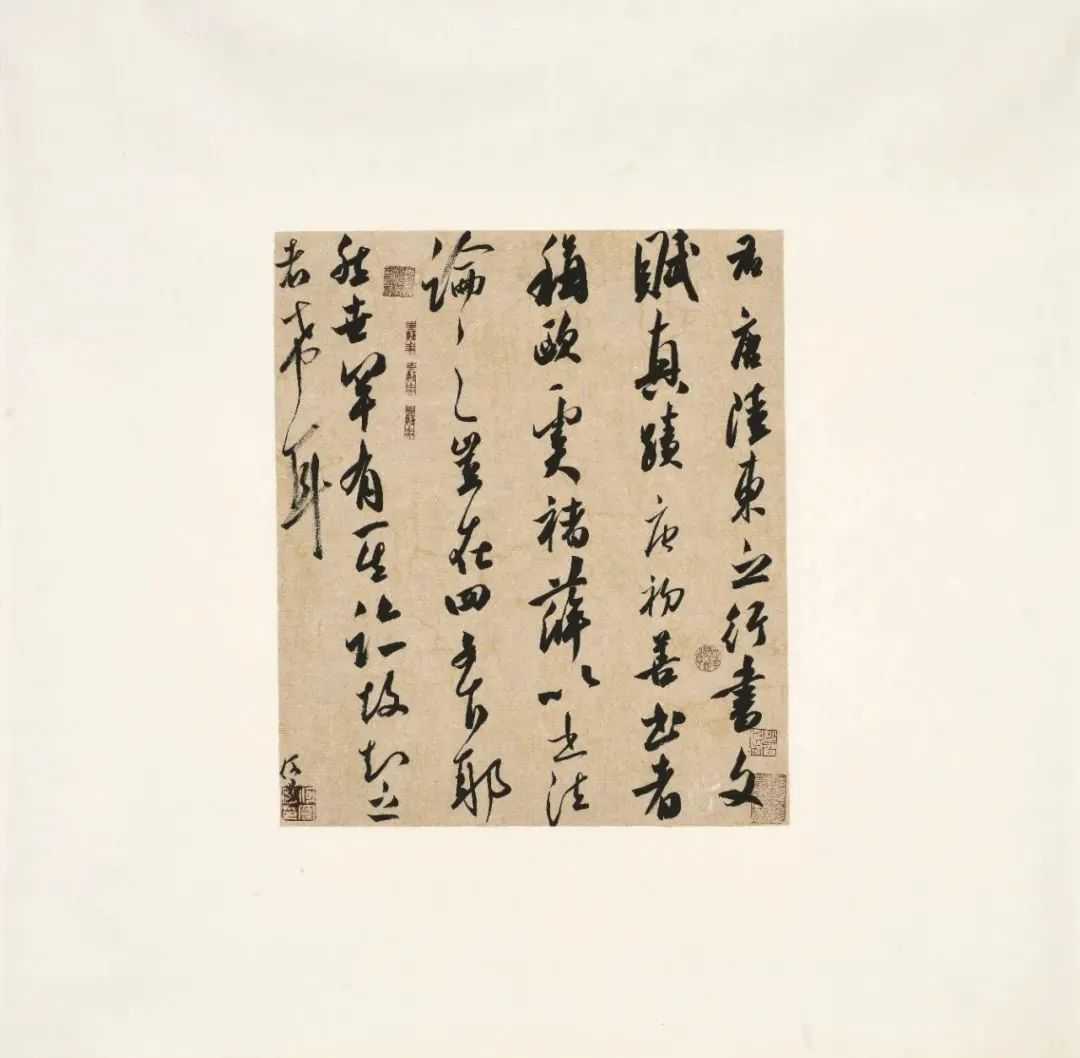 右唐陸柬之行書文
賦真蹟唐初善書者
稱歐虞褚薛以書法
論之豈在四子下耶
然世罕有故知之
者希耳